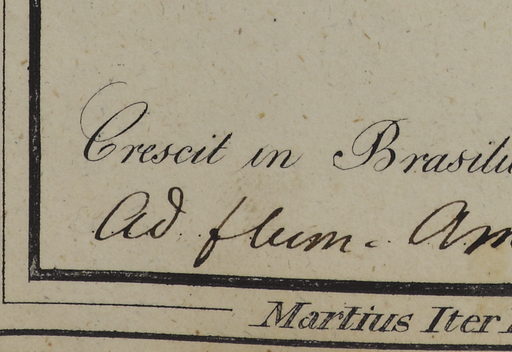 Crescit in Brasilia
Ad flum. Am
Martius Iter